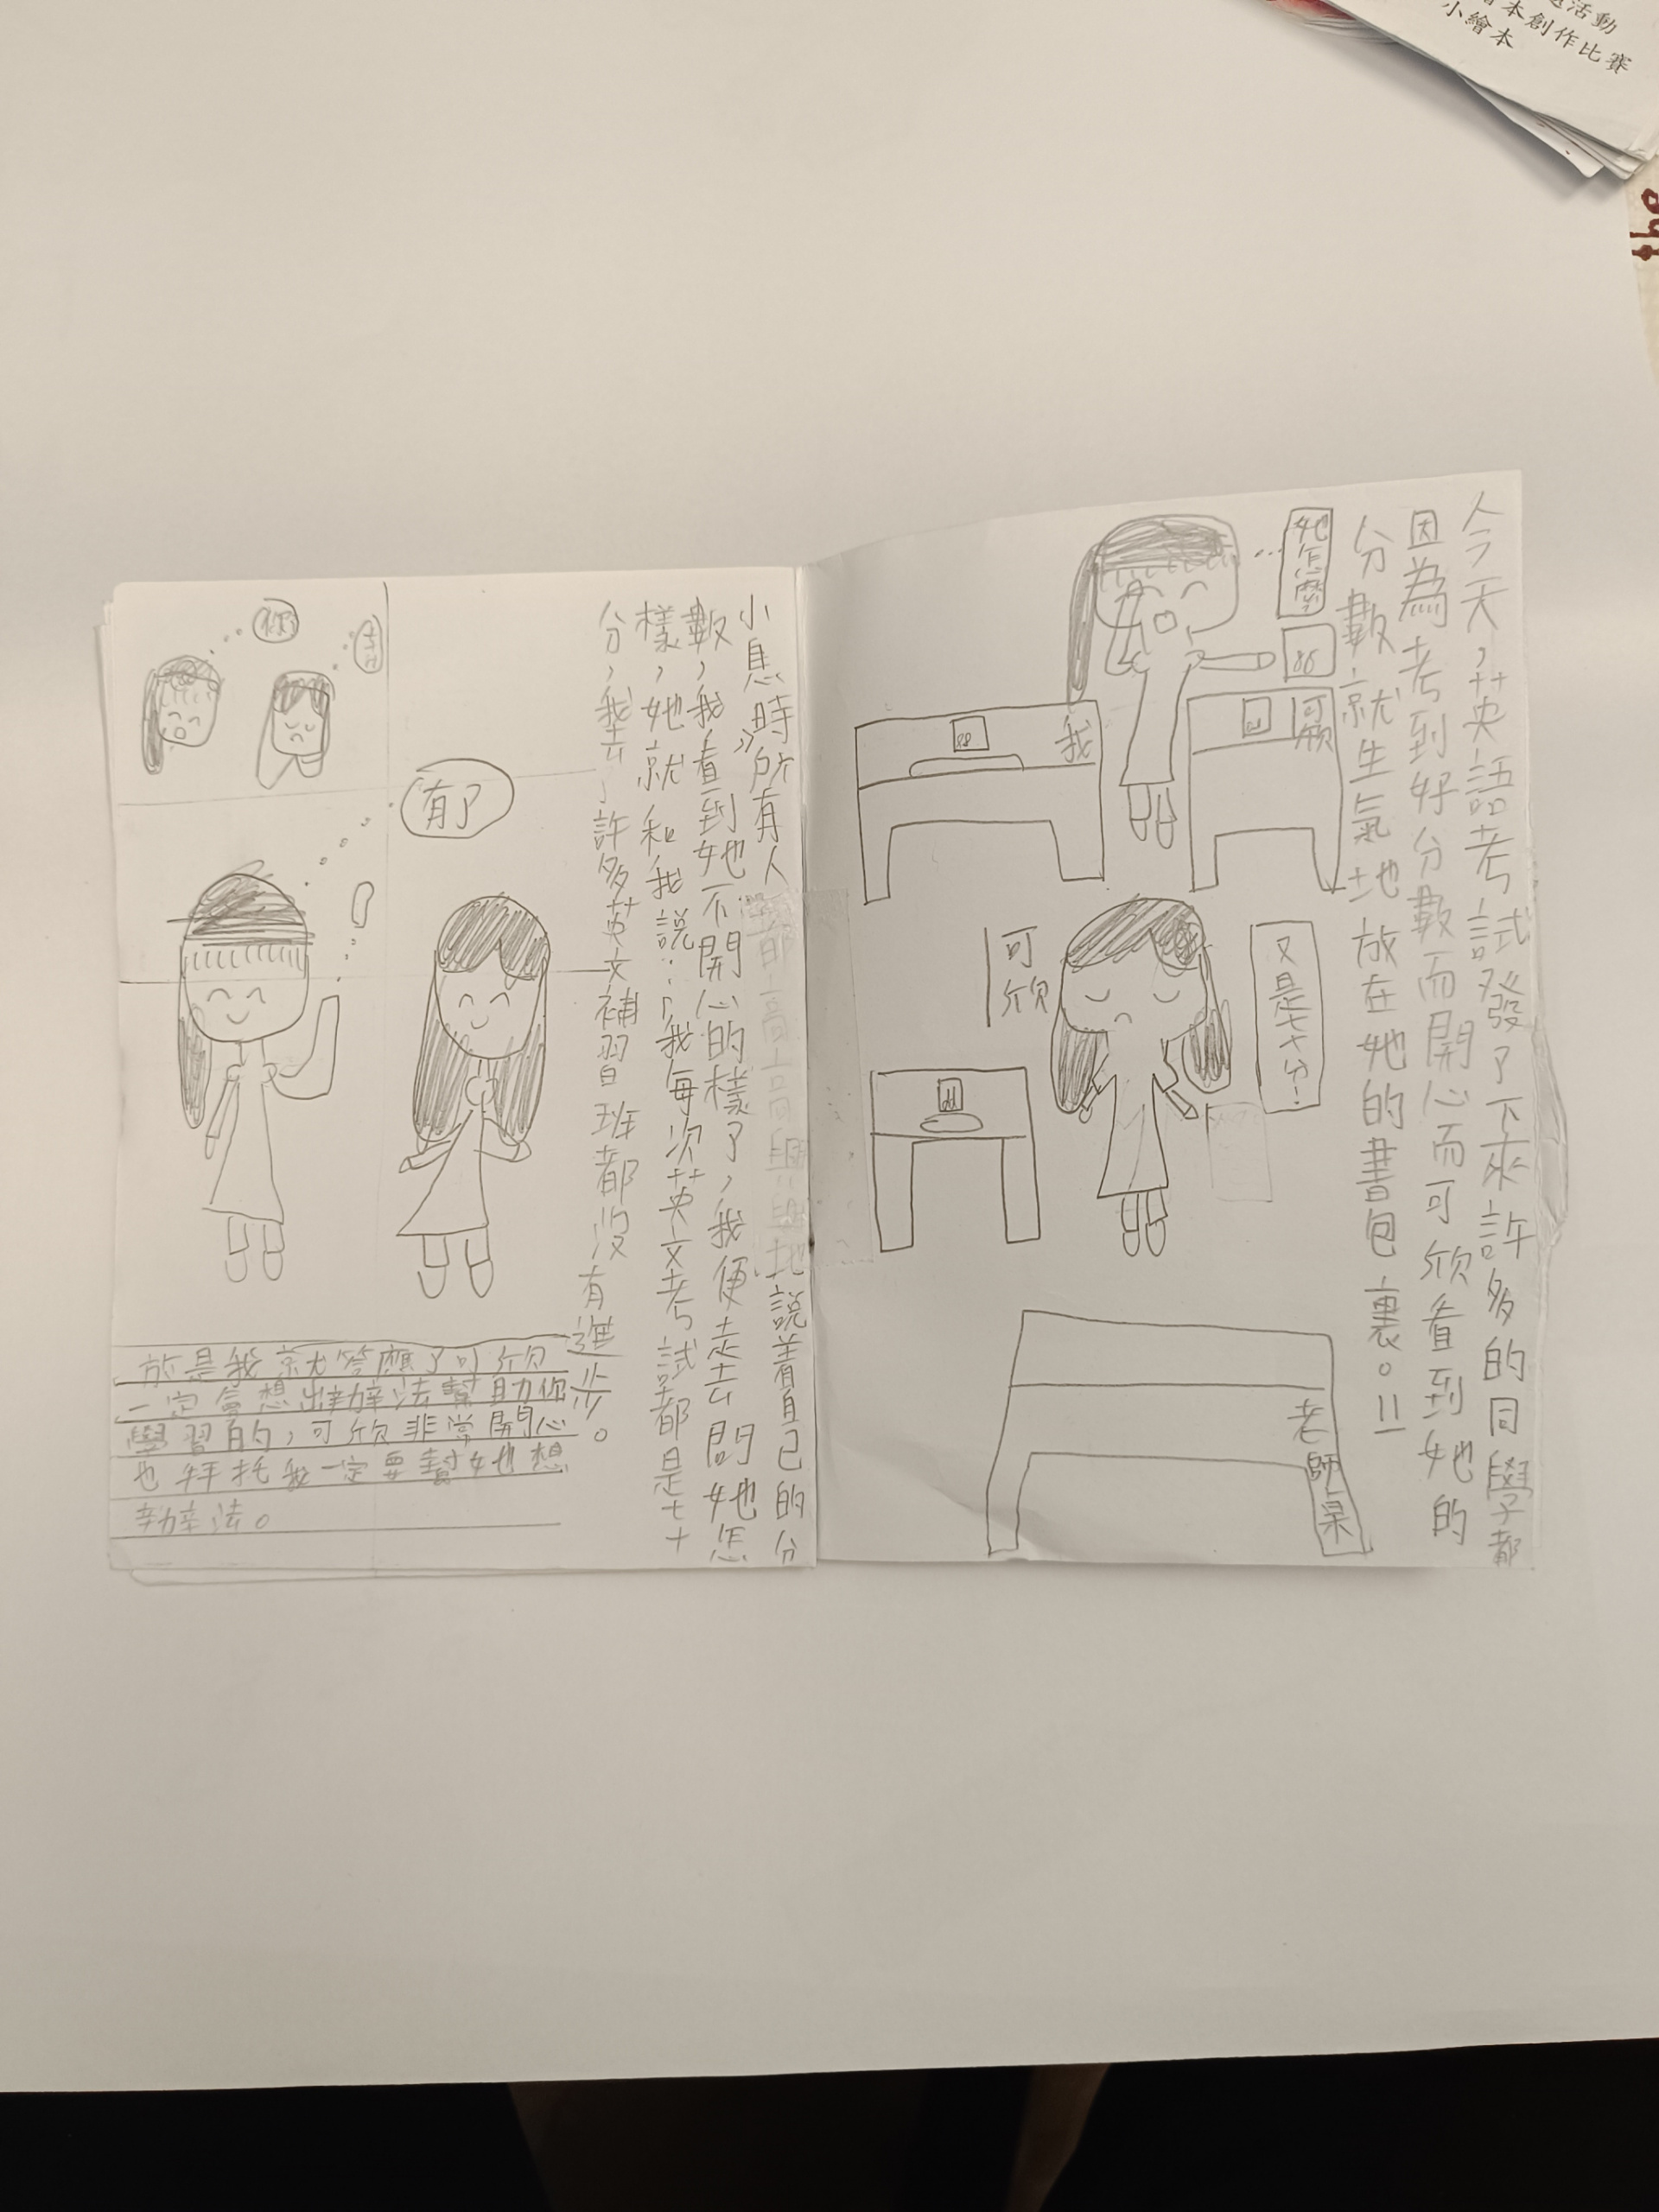 活動
繪本創作比賽
小繪本
今天，英語考試發了下來許多的同學都
因為考到好分數而開心而可欣看到她的
分數就生氣地放在她的書包裏。
她怎麼
可欣
我
又是七十分！
可欣
老師桌
小息時所有人都高高興興地說着自己的分
數，我看到她不開心的樣了，我便走去問她怎
樣，她就和我說：「我每次英文考試都是七十
分，我去了許多英文補習班都沒有進步。
有了
於是我就答應了可欣
一定會想出辦法幫助你
學習的，可欣非常開心
也拜托我一定要幫她想
辦法。